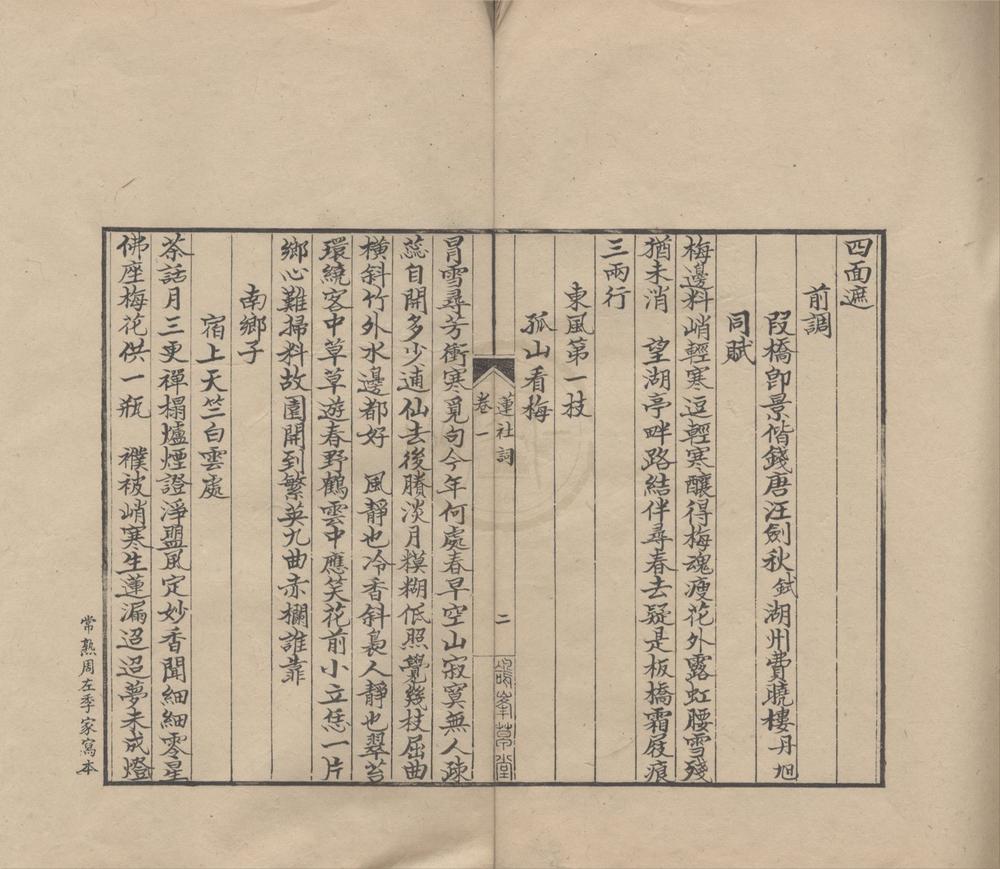 四面遮
前調
段橋卽景偕錢唐汪劍秋鉽湖州費曉樓丹旭
同賦
梅邊料峭輕寒逗輕寒釀得梅魂瘦花外露虹腰雪殘
猶未消　望湖亭畔路結伴尋春去疑是板橋霜屐痕
三兩行
東風第一枝
孤山看梅
冒雪尋芳衝寒覓句今年何處春早空山寂寞無人疎
蕊自開多少逋仙去後賸淡月糢糊低照覺幾枝屈曲
橫斜竹外水邊都好　風靜也冷香斜裊人靜也翠苔
環繞客中草草遊春野鶴雲中應笑花前小立恁一片
鄉心難掃料故園開到繁英九曲赤欄誰靠
南鄉子
宿上天竺白雲處
茶話月三更禪榻爐煙證淨盟風定妙香聞細細零星
佛座梅花供一瓶　襆被峭寒生蓮漏迢迢夢未成燈
蓮社詞
卷一
二
峯草堂
常熟周左季家寫本